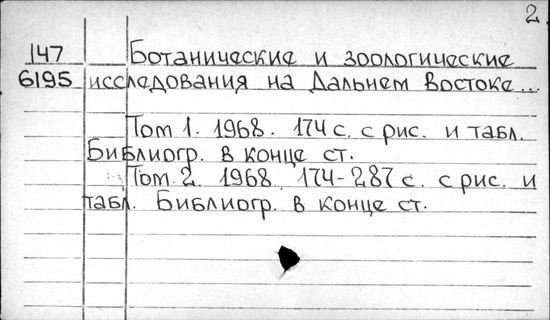 2
147 Ботанические и зоологические
6195 исследования на Дальнем Востоке...
Том 1. 1968. 174 с. с рис. и табл.
Библиогр. в конце ст.
Том 2. 1968. 174-287 с. с рис. и
табл. Библиогр. в конце ст.